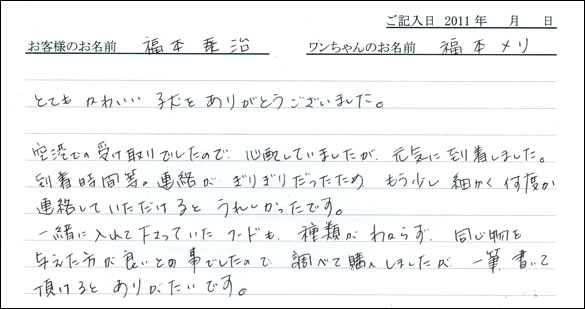 ご記入日 2011年 月 日
お客様のお名前 福本 乗治 ワンちゃんのお名前 福本メリ
とても かわいい 子犬を ありがとうございました。
空港での受け取りでしたので、心配していましたが、元気に到着しました。
到着時間等の連絡が ぎりぎりだったため もう少し 細かく 何度か
連絡していただけると うれしかったです。
一緒に入れて下さっていた フードも、種類が わからず、同じ物を
与えた方が良いとの事でしたので、調べて購入しましたが、一筆 書いて
頂けると ありがたいです。